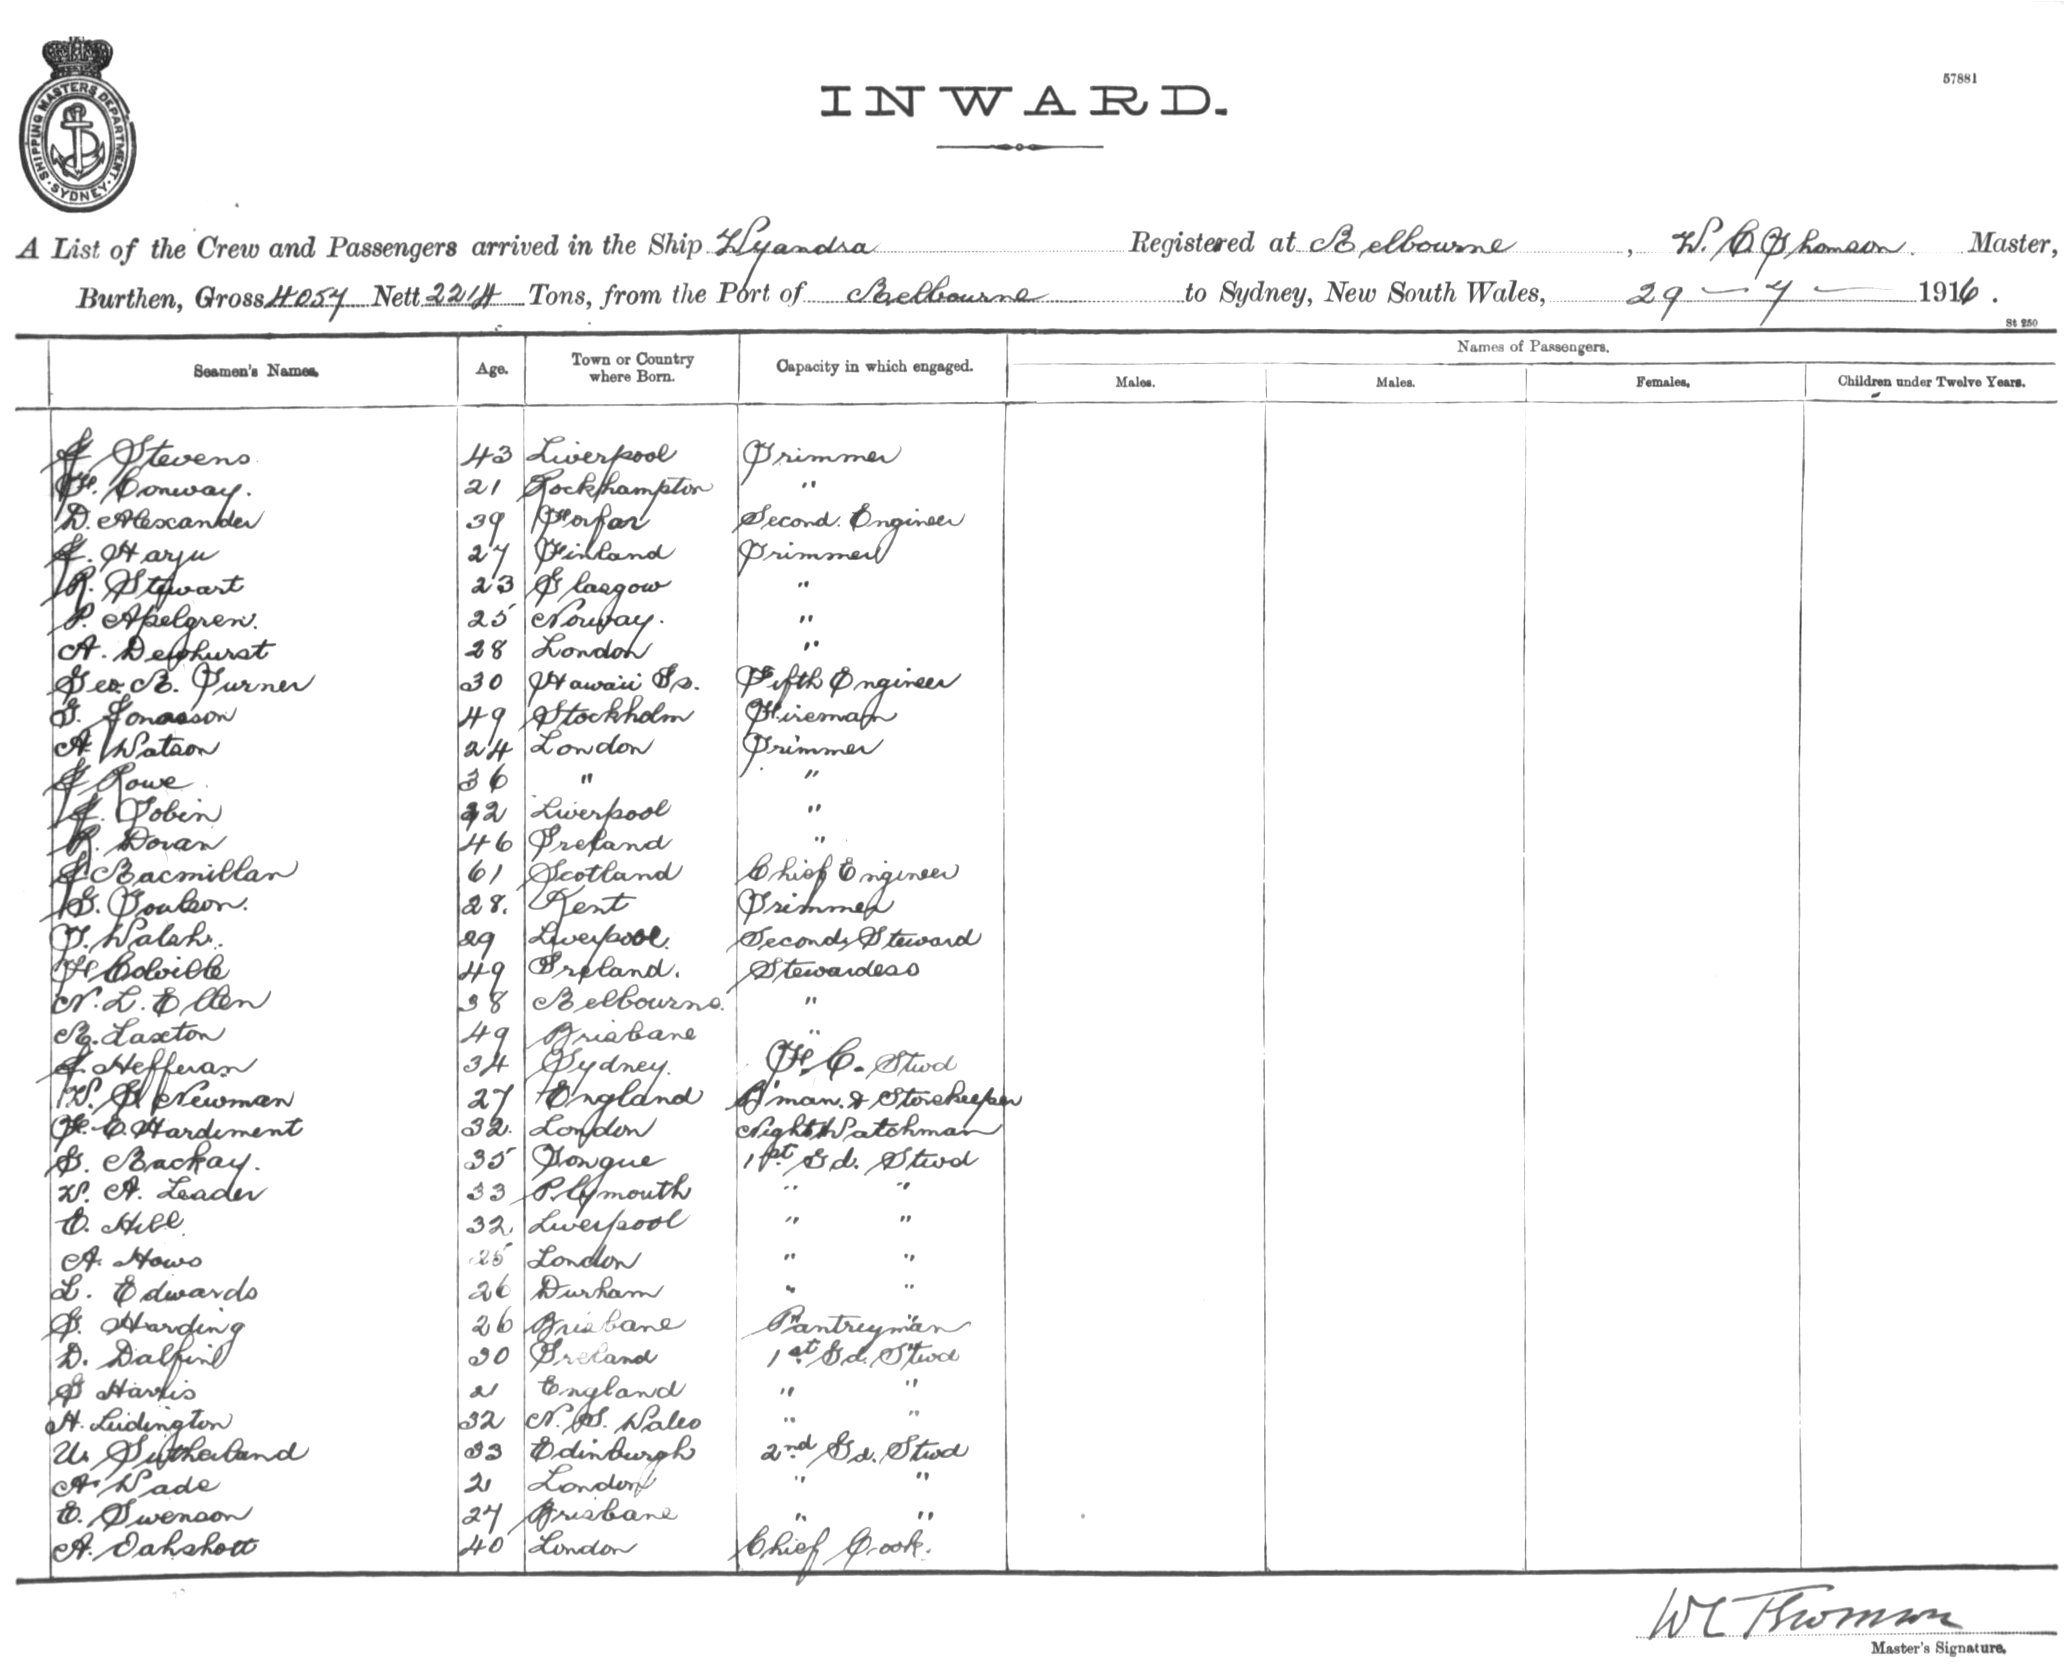 SHIPPING MASTERS DEPARTMENT. SYDNEY
57881
INWARD.
A List of the Crew and Passengers arrived in the Ship Wyandra Registered at Melbourne, W. C Thomson. Master,
Burthen, Gross 4057 Nett 2214 Tons, from the Port of Melbourne to Sydney, New South Wales, 29 - 7 - 1916.
St 250
Seamen's Names. Age. Town or Country where Born. Capacity in which engaged. Names of Passengers.
Males. Males. Females. Children under Twelve Years.
J Stevens 43 Liverpool Trimmer
F. Conway. 21 Rockhampton "
D. Alexander 39 Forfar Second. Engineer
J. Harju 27 Finland Trimmer
R. Stewart 23 Glasgow "
P. Apelgren. 25 Norway. "
A. Dewhurst 28 London "
Geo. M. Turner 30 Hawaii Is. Fifth Engineer
G. Jonasson 49 Stockholm Fireman
A Watson 24 London Trimmer
J Rowe 36 " "
J. Tobin 22 Liverpool "
R. Doran 46 Ireland "
J Macmillan 61 Scotland Chief Engineer
G. Poulson. 28. Kent Trimmer
T. Walsh. 29 Liverpool. Second Steward
F Colville 49 Ireland. Stewardess
N. L. Ellen 38 Melbourne. "
M. Laxton 49 Brisbane "
J. Hefferan 34 Sydney. F. C. Stwd
W. G. Newman 27 England B'man. & Storekeeper
F. C. Hardiment 32. London Night Watchman
G. Mackay. 35 Tongue 1st Gd. Stwd
W. A. Leader 33 Plymouth " "
E. Hill 32 Liverpool " "
A. Hows 25 London " "
L. Edwards 26 Durham " "
G. Harding 26 Brisbane Pantryman
D. Dalfin 30 Ireland 1st Gd. Stwd
G Harris 21 England " "
H. Ludington 32 N. S. Wales " "
W. Sutherland 33 Edinburgh 2nd Gd. Stwd
A. Wade 21 London " "
E. Swenson 27 Brisbane " "
A. Oakshott 40 London Chief Cook.
WC Thomson
Master's Signature.